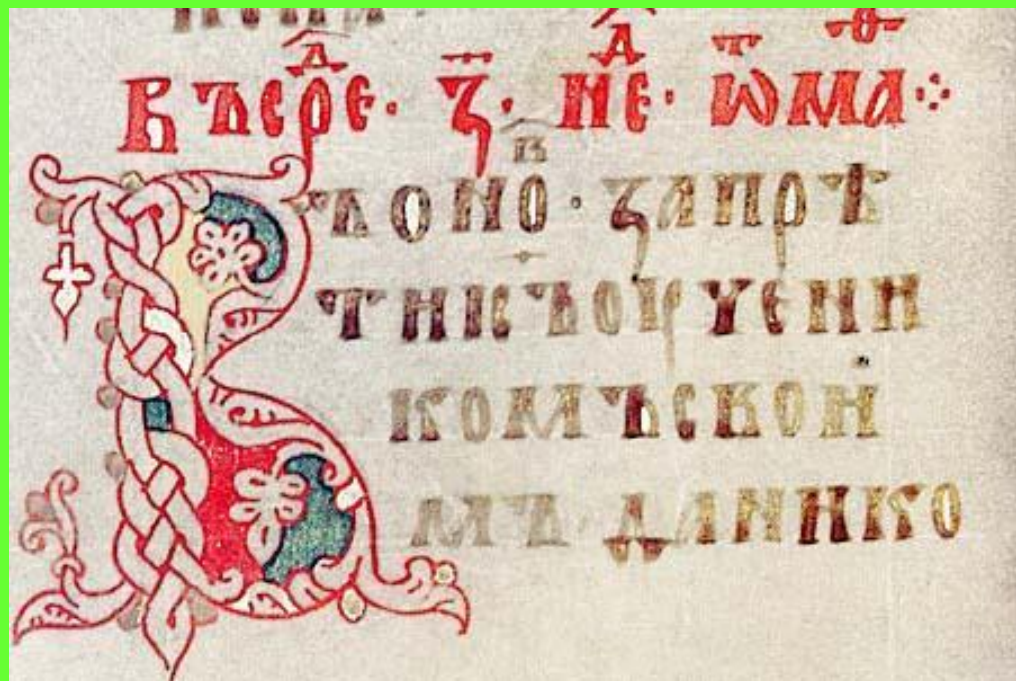 въ срⷣе· з҃· неⷣ· ѿ маⷴ ⁘
Въ оноⷡ · запрѣ
ти іс҃ъ оучени
комъ свои
мъ да нико